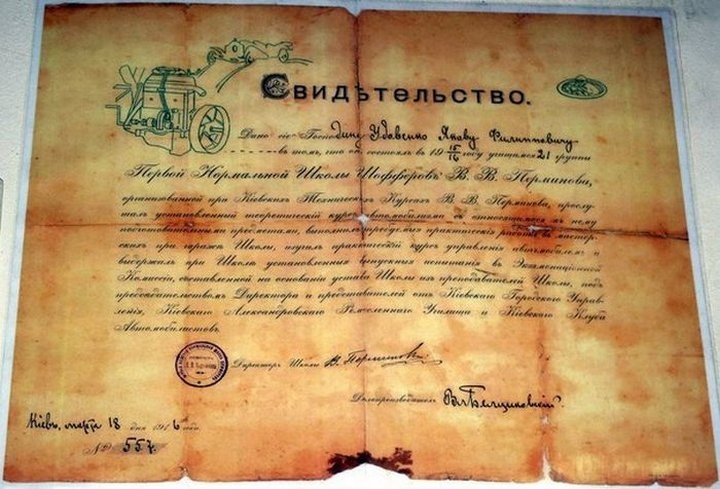 Свидѣтельство.
Дано сіе Господину Удовенко Якову Филипповичу
въ томъ, что онъ состоялъ въ 19 15/16 году учащимся 21 группы
Первой Нормальной Школы Шофферовъ В. В. Перминова,
организованной при Кіевскихъ Техническихъ Курсахъ В. В. Перминова, прослу-
шалъ установленный теоретическій курсъ автомобилизма съ относящимися къ нему
подготовительными предметами, выполнилъ практическія работы въ мастер-
скихъ при гаражѣ Школы, изучилъ практическій курсъ управленія автомобилемъ и
выдержалъ при Школѣ установленныя выпускныя испытанія въ Экзаменаціонной
Комиссіи, составленной на основаніи устава Школы изъ преподавателей Школы, подъ
предсѣдательствомъ Директора и представителей отъ Кіевскаго Городского Управ-
ленія, Кіевскаго Александровскаго Ремесленнаго Училища и Кіевскаго Клуба
Автомобилистовъ.
Директоръ Школы В. Перминовъ
Дѣлопроизводитель
Кіевъ, марта 18 дня 1916 года.
№ 557.